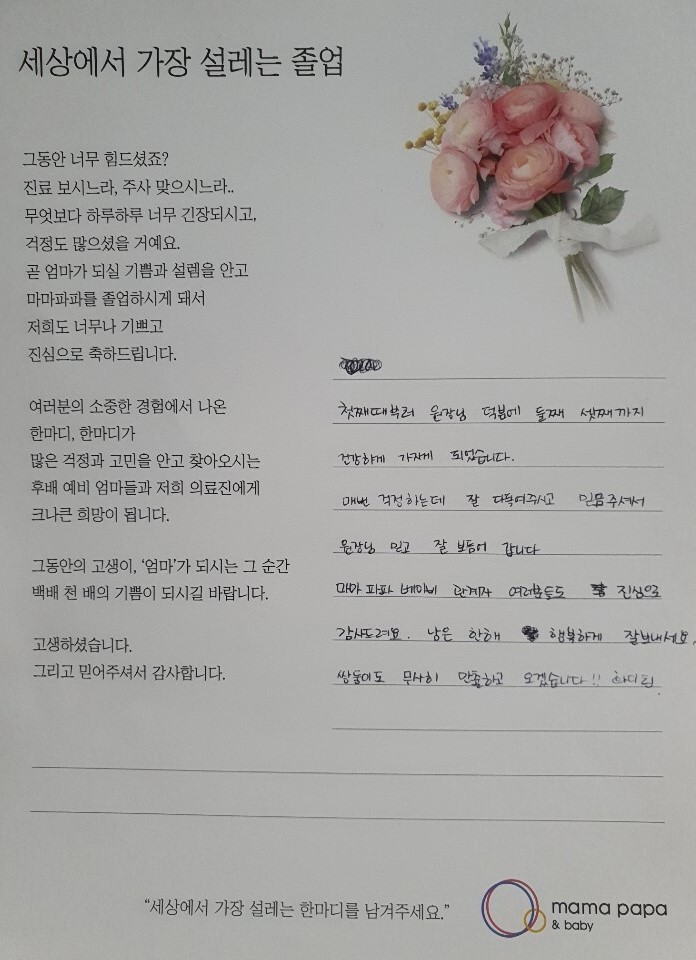 세상에서 가장 설레는 졸업
그동안 너무 힘드셨죠?
진료 보시느라, 주사 맞으시느라..
무엇보다 하루하루 너무 긴장되시고,
걱정도 많으셨을 거예요.
곧 엄마가 되실 기쁨과 설렘을 안고
마마파파를 졸업하시게 돼서
저희도 너무나 기쁘고
진심으로 축하드립니다.
여러분의 소중한 경험에서 나온
한마디, 한마디가
많은 걱정과 고민을 안고 찾아오시는
후배 예비 엄마들과 저희 의료진에게
크나큰 희망이 됩니다.
그동안의 고생이, '엄마'가 되시는 그 순간
백배 천 배의 기쁨이 되시길 바랍니다.
고생하셨습니다.
그리고 믿어주셔서 감사합니다.
첫째때부터 원장님 덕분에 둘째 셋째까지
건강하게 가지게 되었습니다.
매번 걱정하는데 잘 다독여주시고 믿음주셔서
원장님 믿고 잘 보듬어 갑니다
마마파파베이비 관계자 여러분들도 진심으로
감사드려요. 남은 한해 행복하게 잘보내세요.
쌍둥이도 무사히 만출하고 오겠습니다!! 화이팅.
"세상에서 가장 설레는 한마디를 남겨주세요."
mama papa
& baby